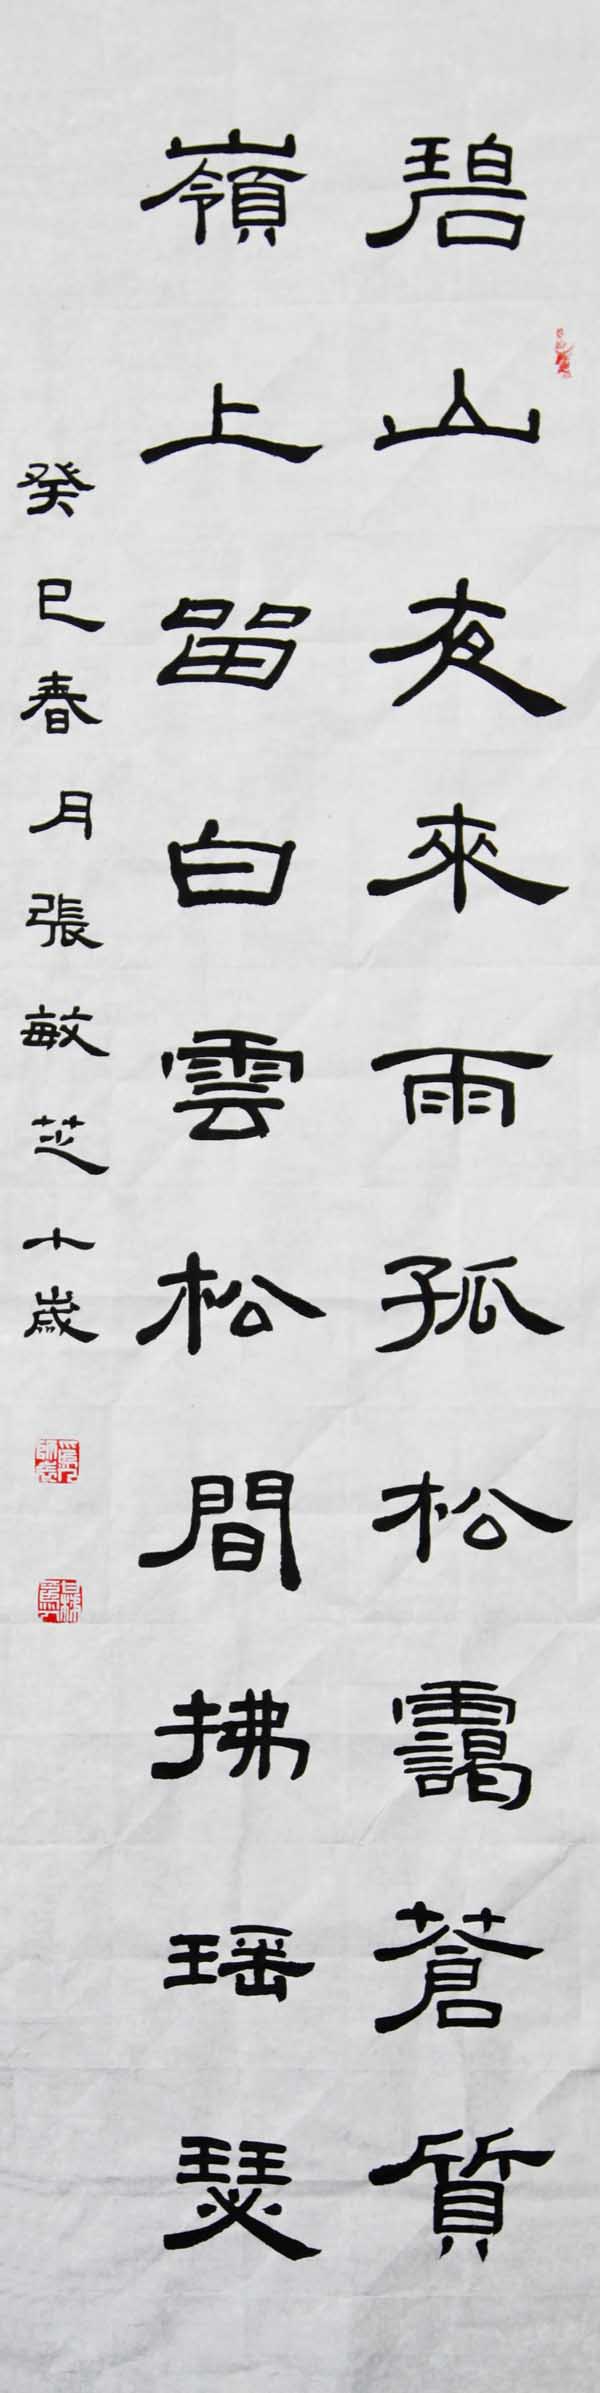 碧山夜來雨孤松靄蒼質
嶺上留白雲松間拂瑶瑟
癸巳春月張敏芝十歲